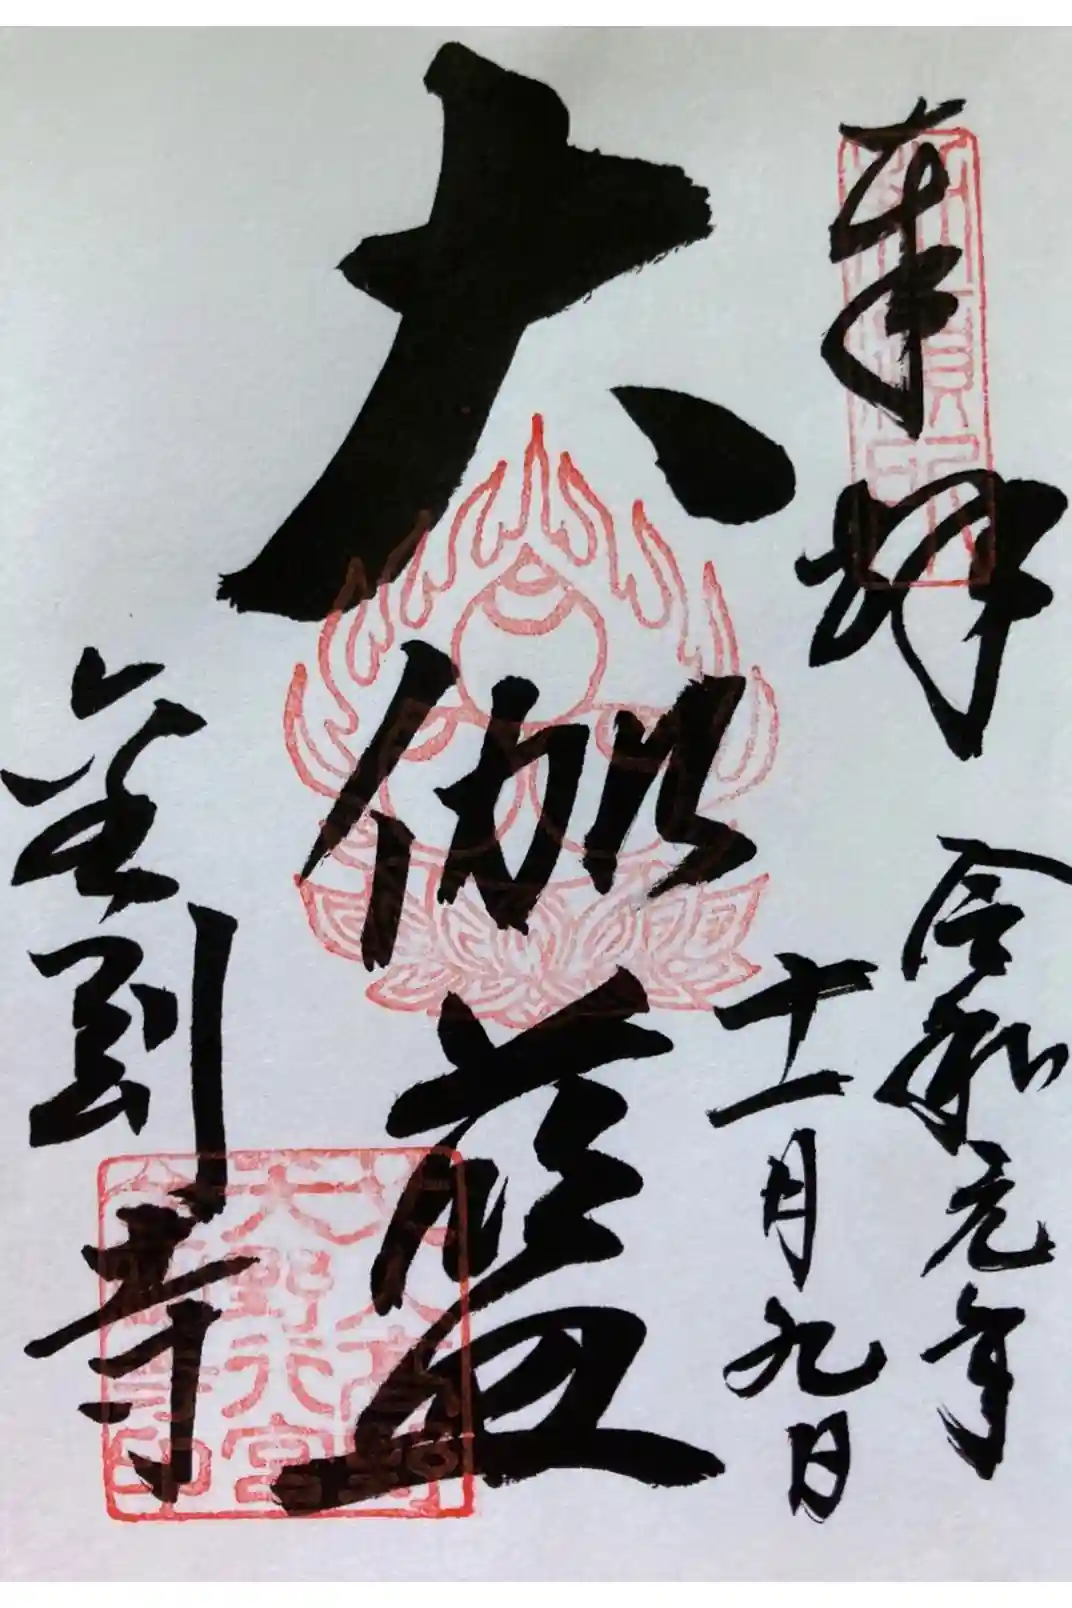 奉拝
令和元年
十一月九日
大伽藍
金剛寺
天野行宮